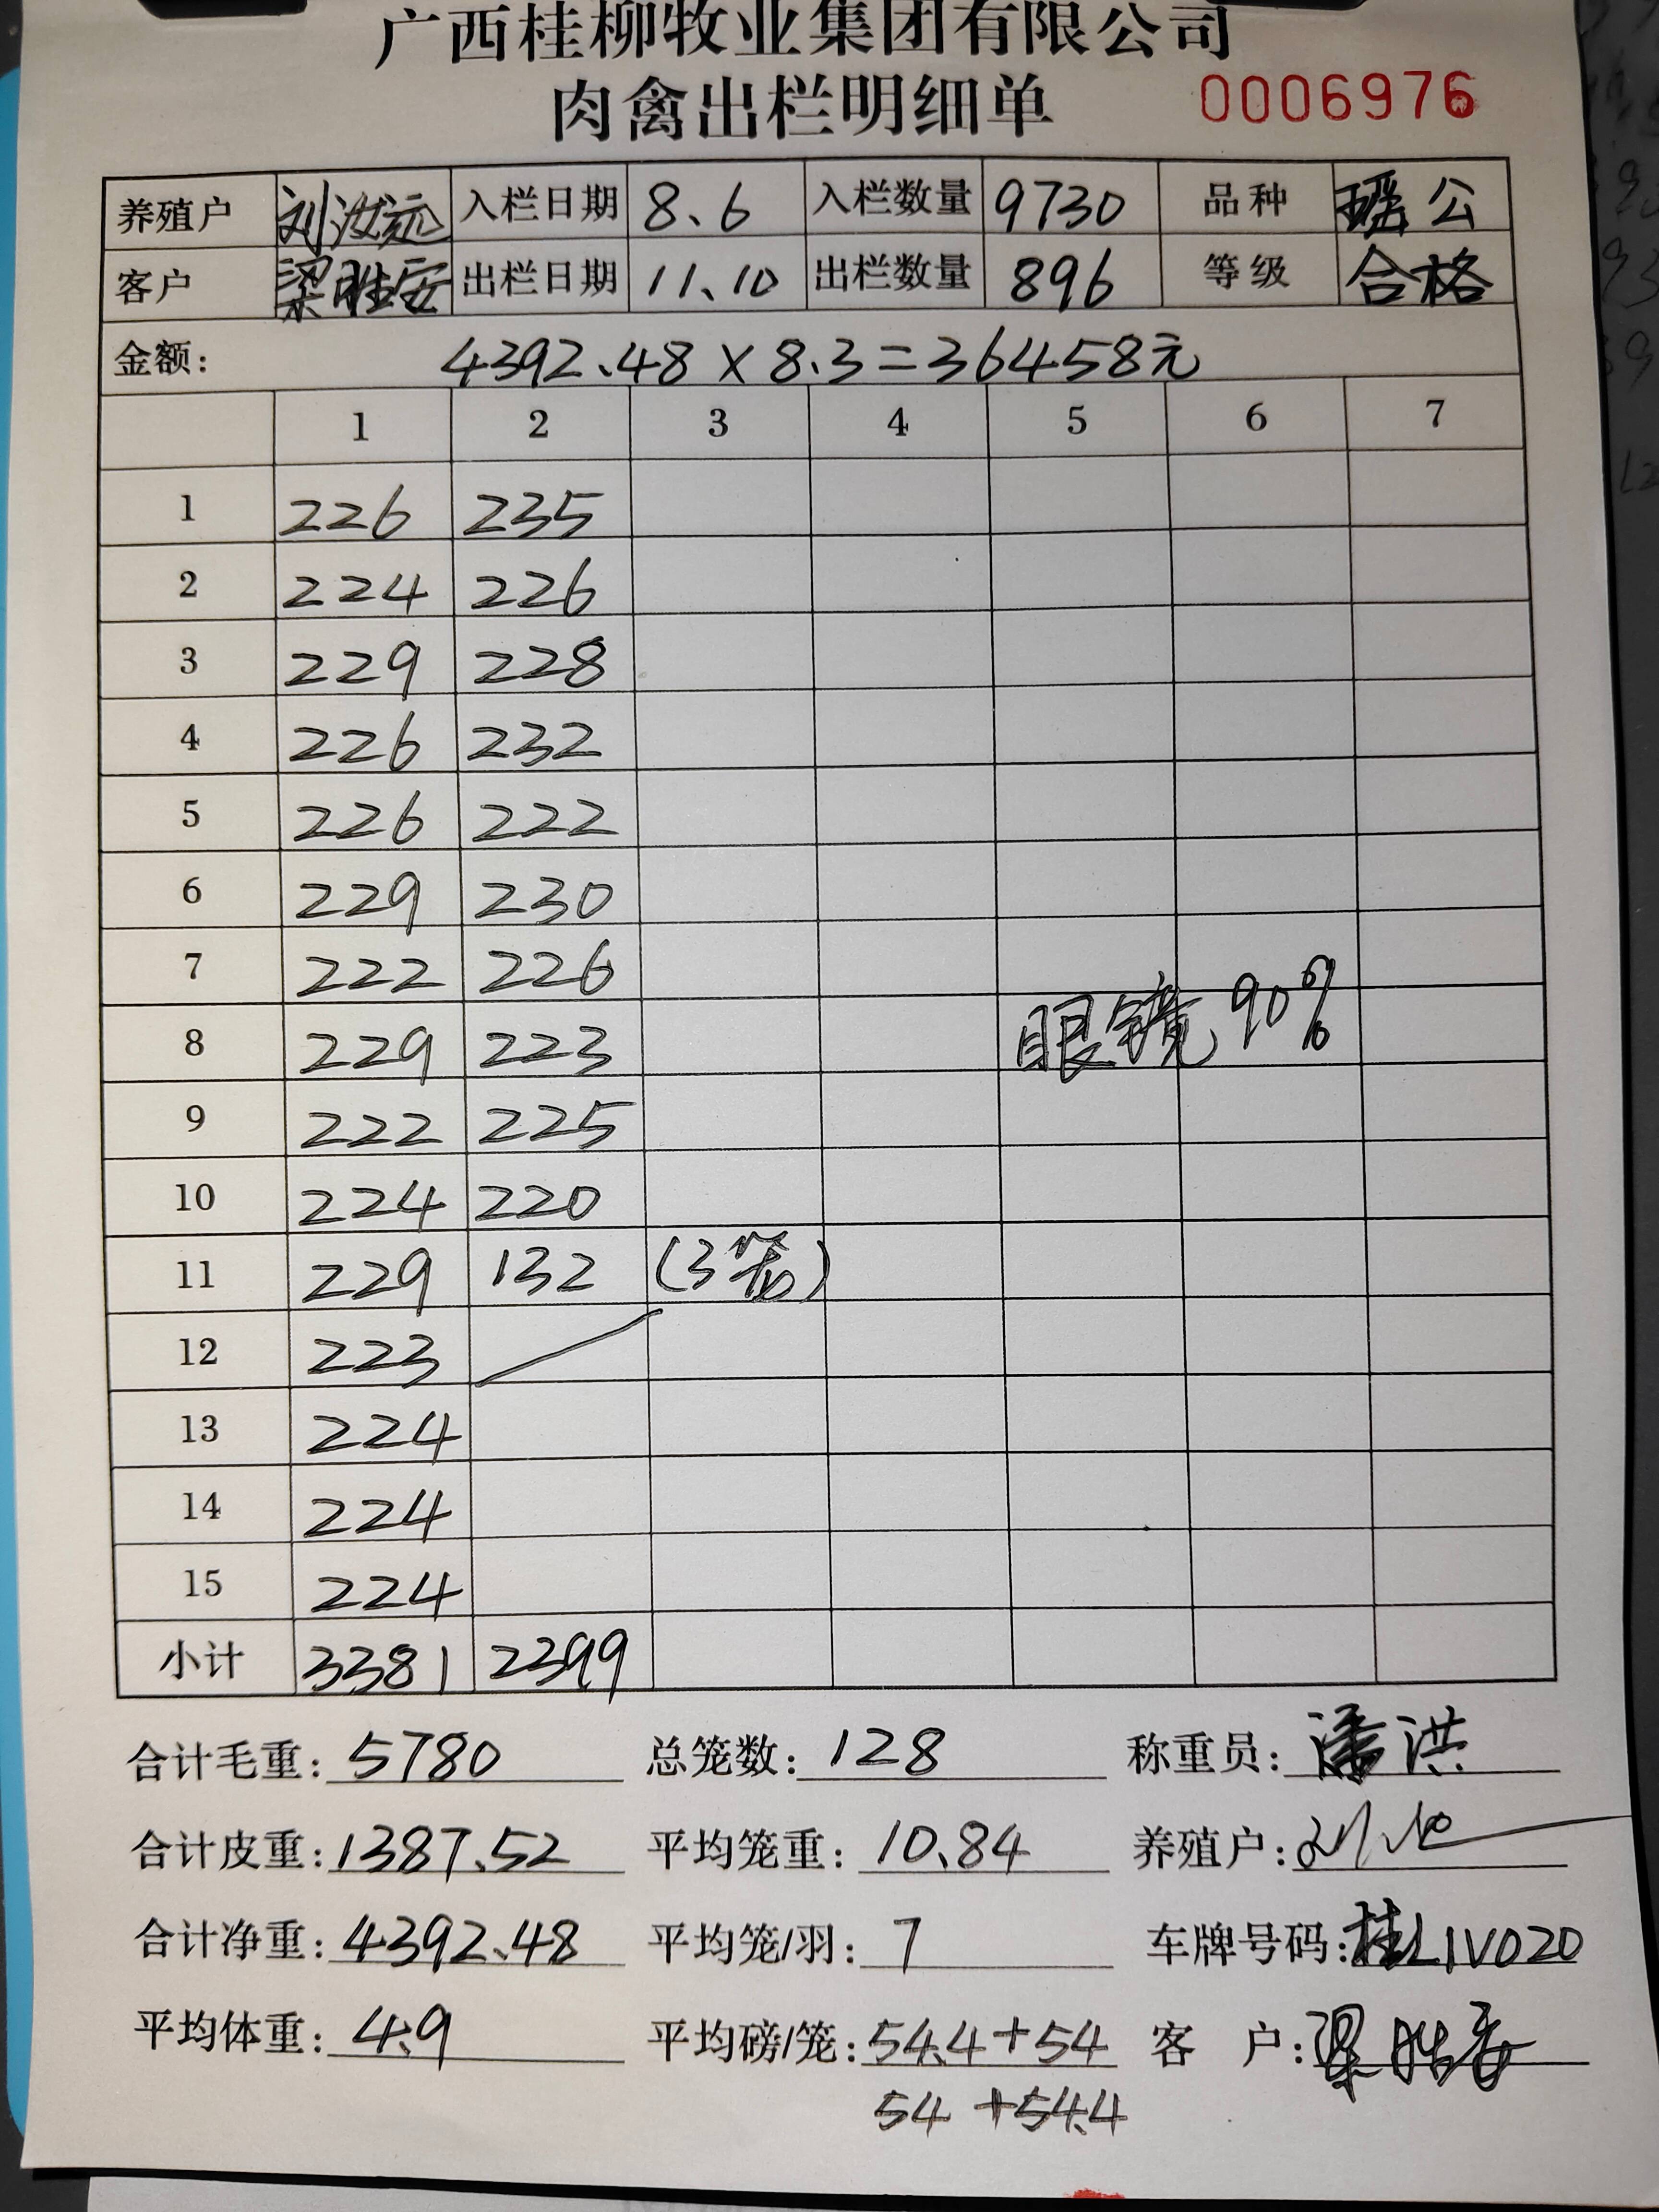 广西桂柳牧业集团有限公司
肉禽出栏明细单 0006976
养殖户 刘汝远 入栏日期 8、6 入栏数量 9730 品种 瑶公
客户 梁胜安 出栏日期 11、10 出栏数量 896 等级 合格
金额: 4392、48×8.3=36458元
1 2 3 4 5 6 7
1 226 235
2 224 226
3 229 228
4 226 232
5 226 222
6 229 230
7 222 226
8 229 223 眼镜90%
9 222 225
10 224 220
11 229 132 (3笼)
12 223
13 224
14 224
15 224
小计 3381 2399
合计毛重: 5780 总笼数: 128 称重员: 潘洪
合计皮重: 1387、52 平均笼重: 10、84 养殖户:
合计净重: 4392、48 平均笼/羽: 7 车牌号码: 桂L1V020
平均体重: 4.9 平均磅/笼: 54.4+54 客户: 梁胜安
54+54.4